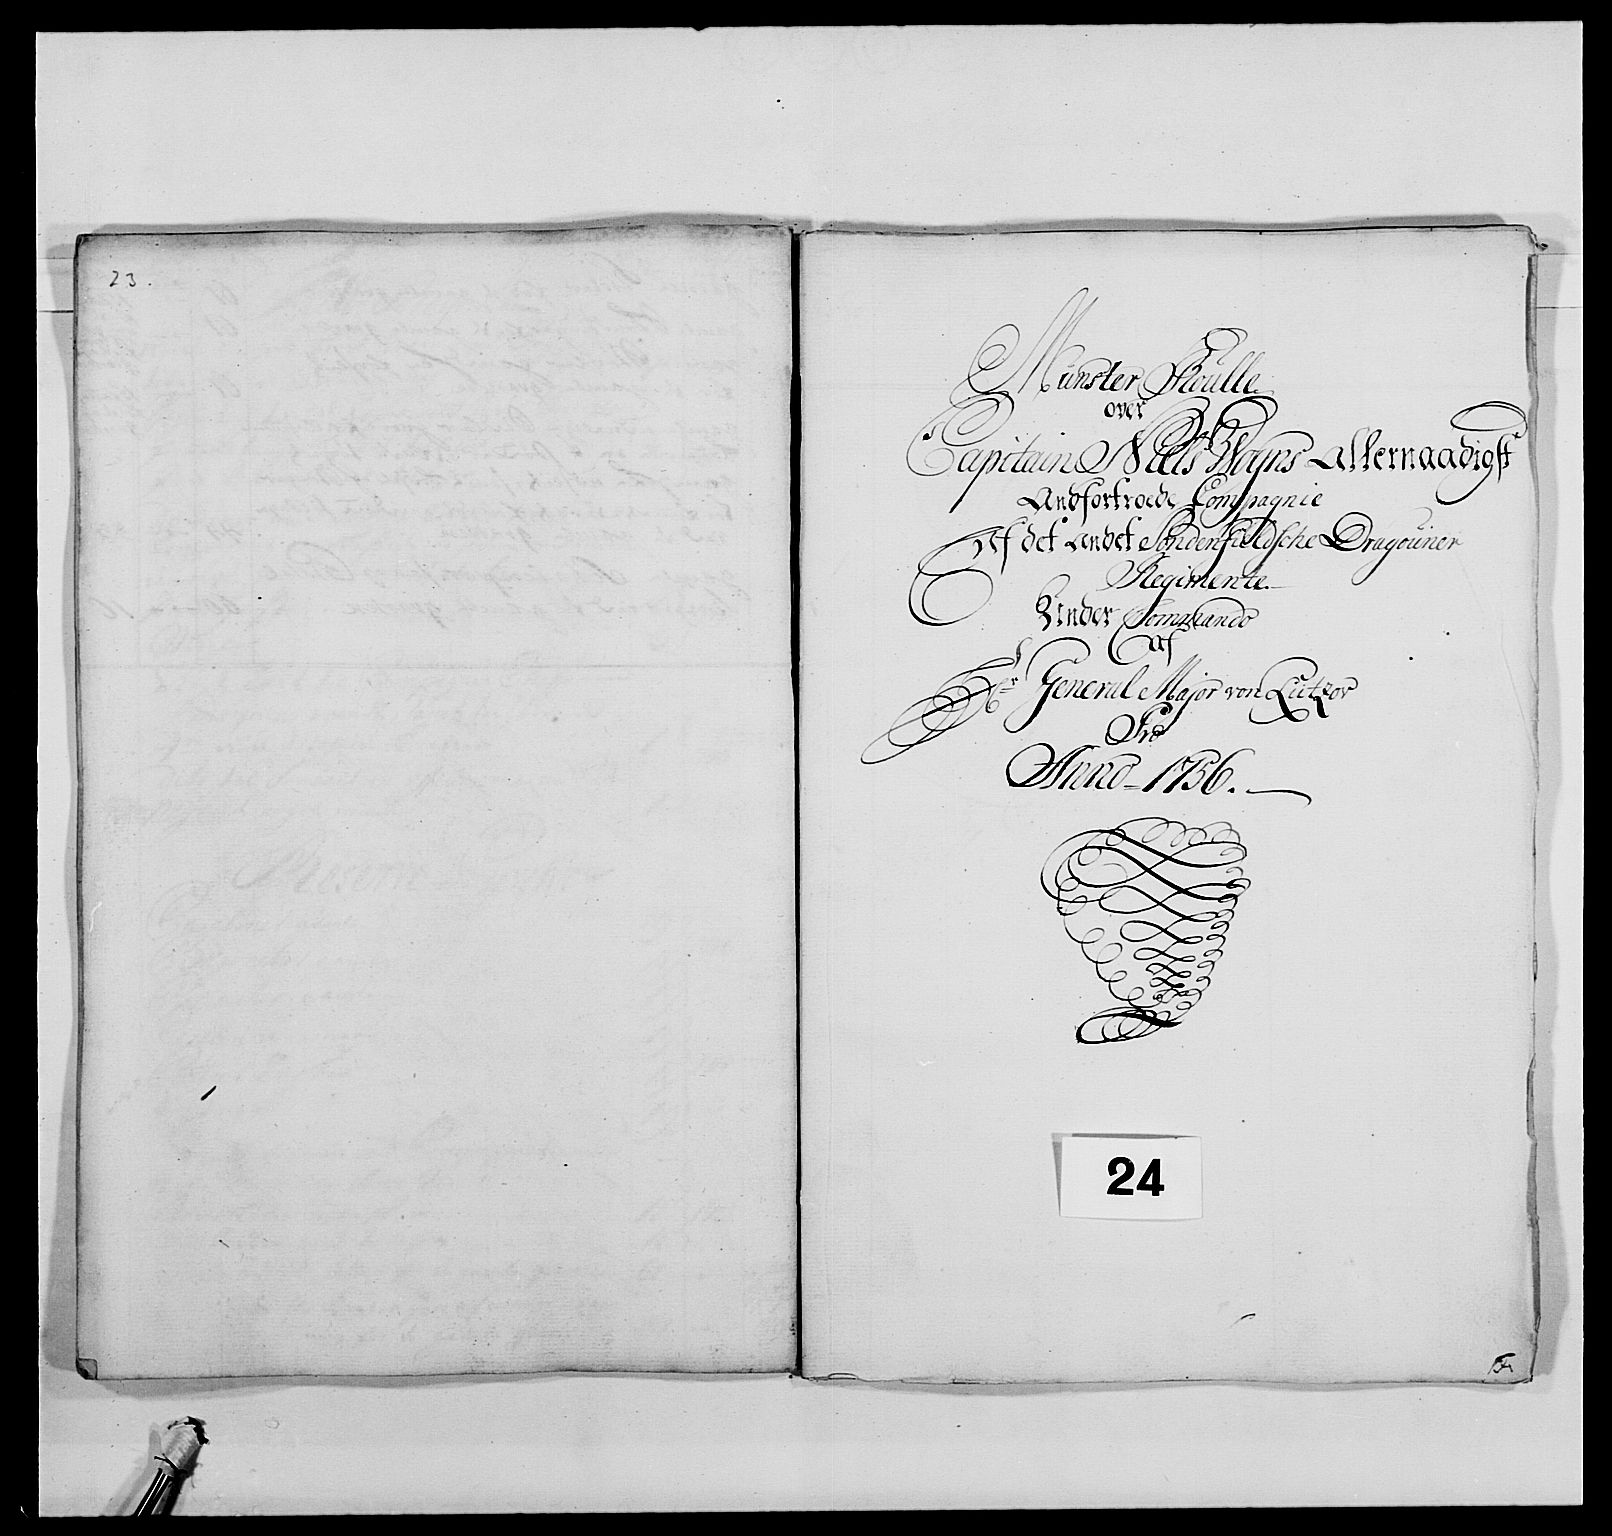 23.
Munster Roulle
over
Capitain Niels Wogns Allernaadigst
Andfortroede Compagnie
Af det andet Söndenfieldsche Dragouner
Regimente
Under Commando
Af
Hr General Major von Lützov
Pro
Anno - 1756.
24